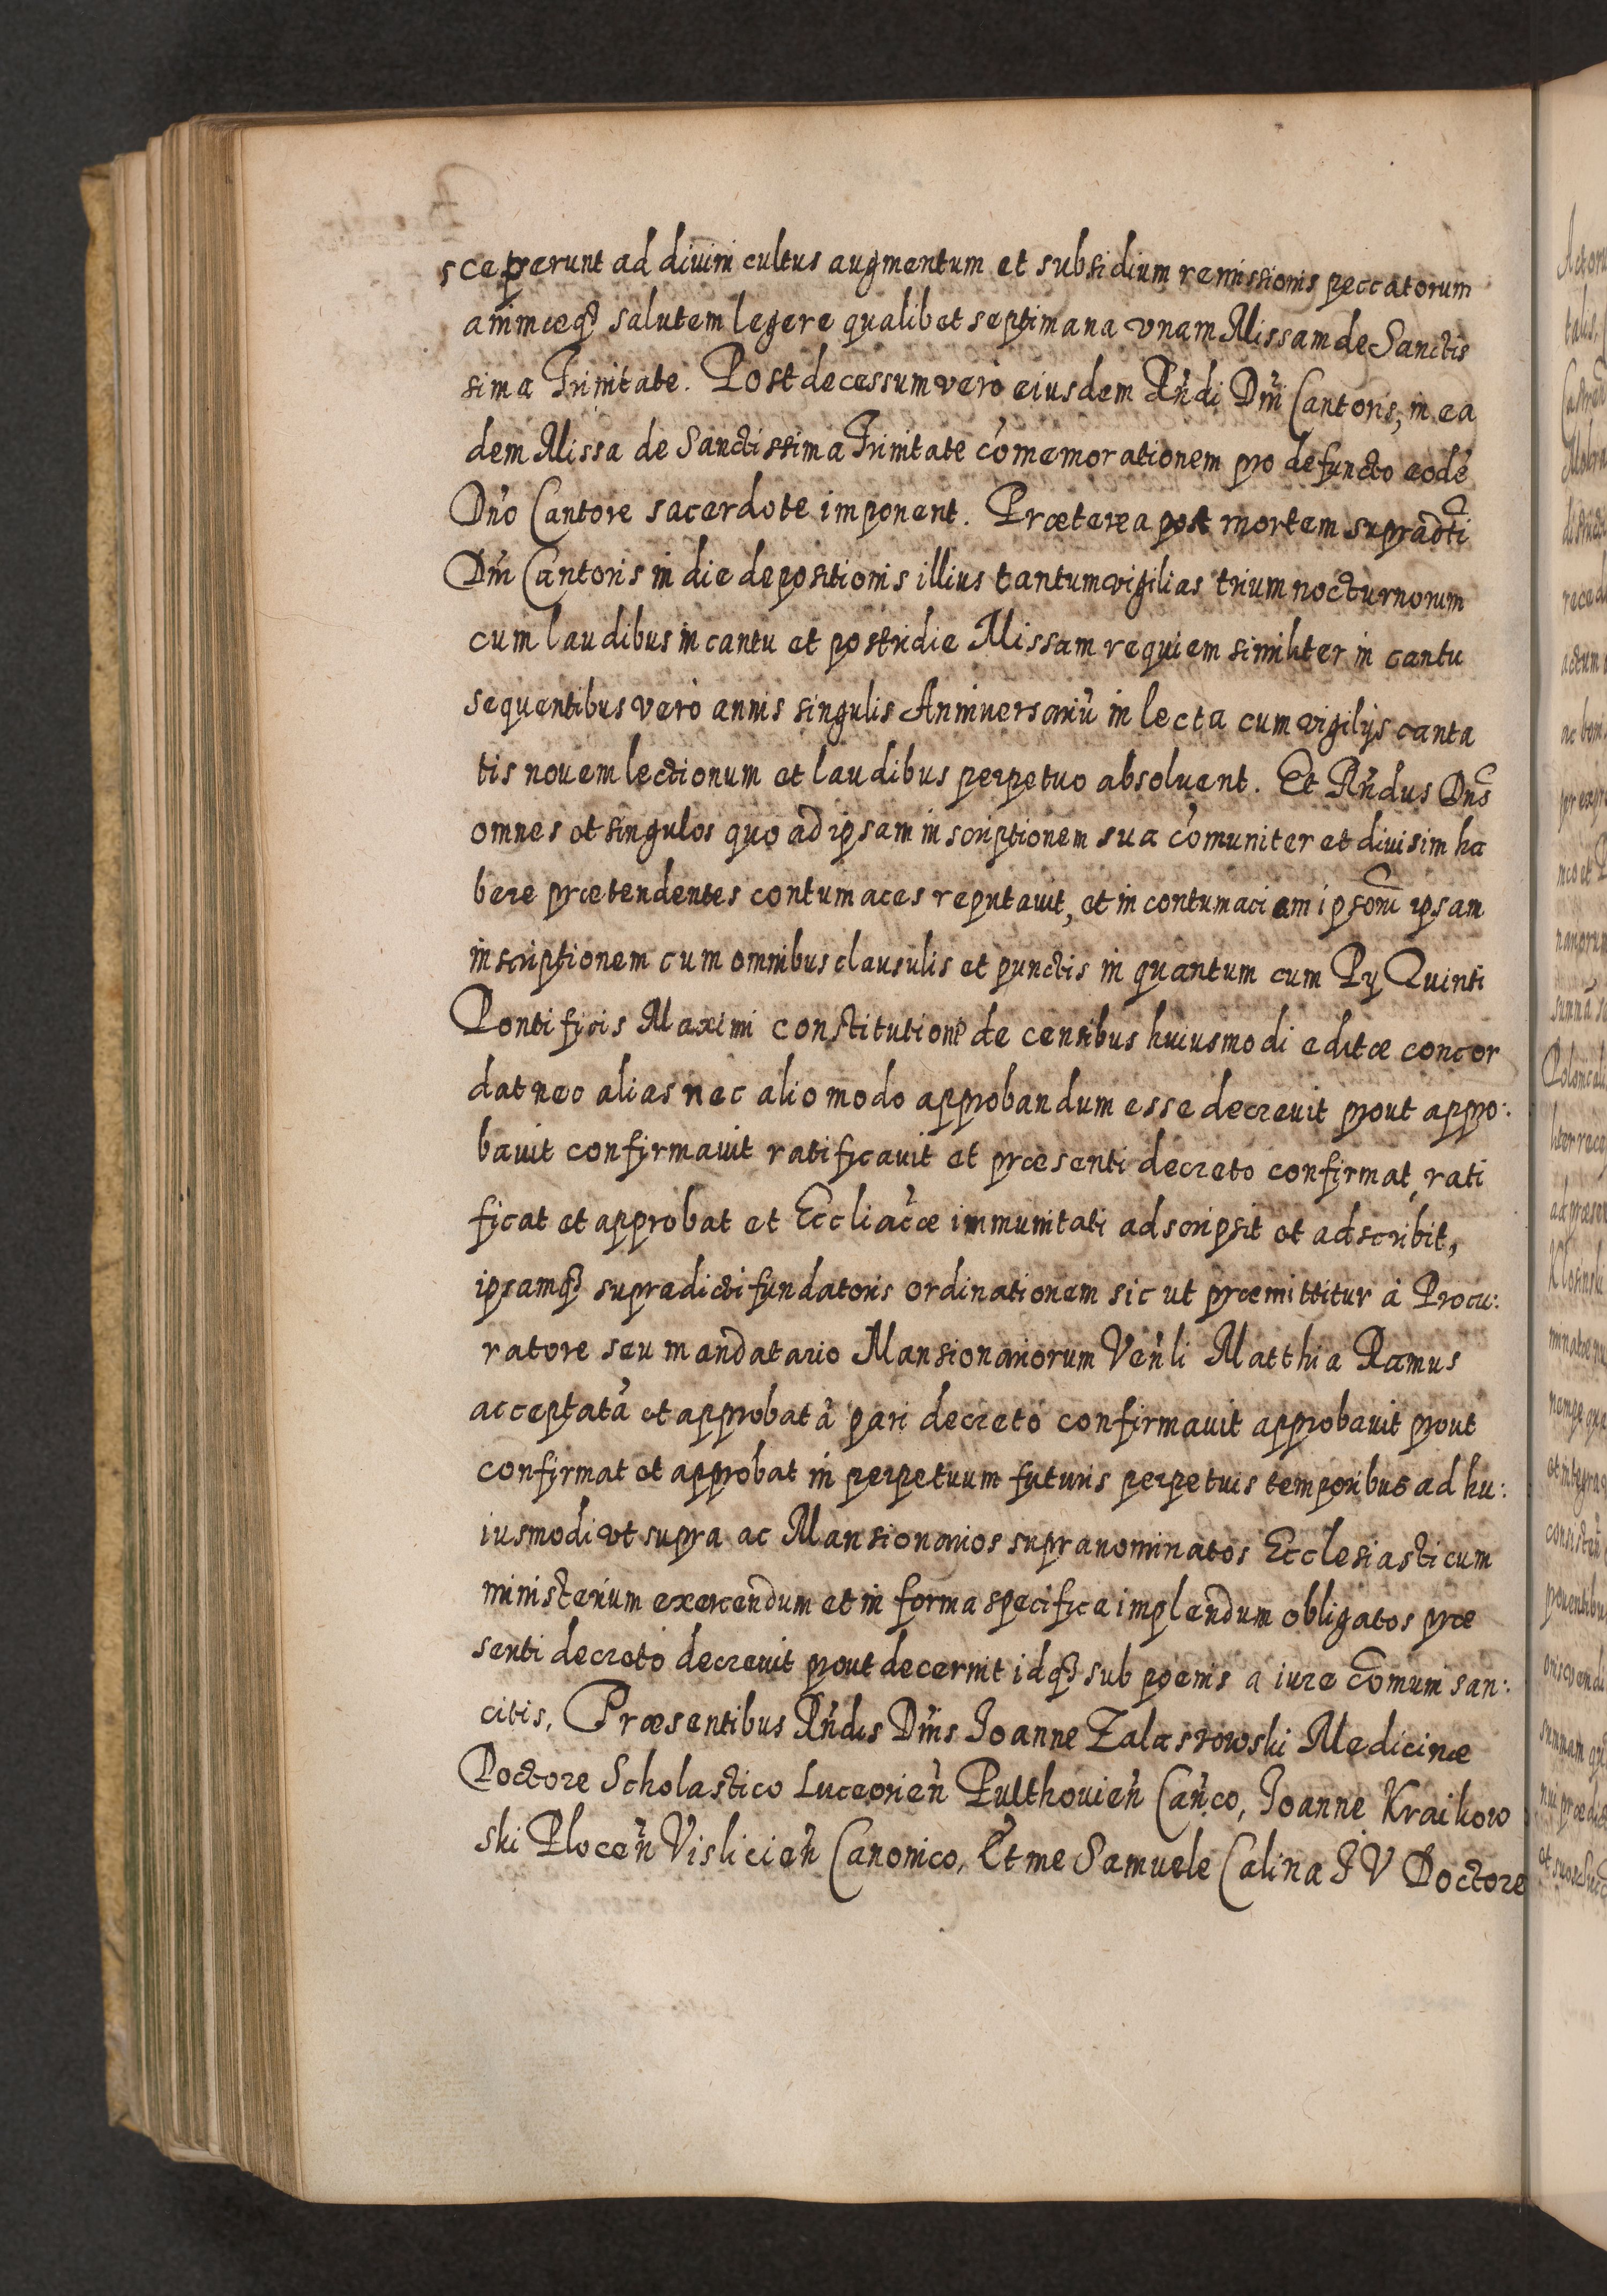 sceperunt ad divini cultus augmentum et subsidium remissionis peccatorum
animæq3 salutem legere qualibet septimana vnam Missam de Sanctis
sima Trinitate. Post decessum vero eiusdem Rńdi Dńi Cantoris, in ea
dem Missa de Sanctissima Trinitate cómemorationem pro defuncto eodé
Dńo Cantore sacerdote imponent. Præterea post mortem supradti
Dńi Cantoris in die depositionis illius tantum vigilias trium nocturnorum
cum laudibus in cantu et postridie Missam requiem similiter in cantu
sequentibus vero annis singulis Anniuersariú in lecta cum vigilijs canta
tis nouem lectionum et laudibus perpetuo absoluent. Et Rńdus Dńs
omnes et singulos quo ad ipsam inscriptionem sua cómuniter et divisim ha
bere prætendentes contumaces reputauit, et in contumaciam ipsorū ipsam
inscriptionem cum omnibus clausulis et punctis in quantum cum Pij Quinti
Pontificis Maximi constitutione de censibus huiusmodi editæ concor
dat nec alias nec alio modo approbandum esse decreuit prout appro:
bauit confirmauit ratificauit et præsenti decreto confirmat, rati
ficat et approbat et Eccliacæ immunitati adscripsit et adscribit,
ipsamq3 supradicti fundatoris ordinationem sic ut præmittitur à Procu:
ratore seu mandatario Mansionariorum Veńli Matthia Ramus
acceptatá et approbatá pari decreto confirmauit approbauit prout
confirmat et approbat in perpetuum futuris perpetuis temporibus ad hu:
iusmodi vt supra ac Mansionarios supranominatos Ecclesiasticum
ministerium exercendum et in forma specifica implendum obligatos præ
senti decreto decreuit prout decernit idq3 sub poenis a iure comuni san:
citis. Præsentibus Rńdis Dńis Ioanne Zalaskowski Medicinæ
Doctore Scholastico Luceorień Pulthouień Cańco, Ioanne Kraikow
ski Ploceń Vislicień Canonico, Et me Samuele Calina I V Doctore